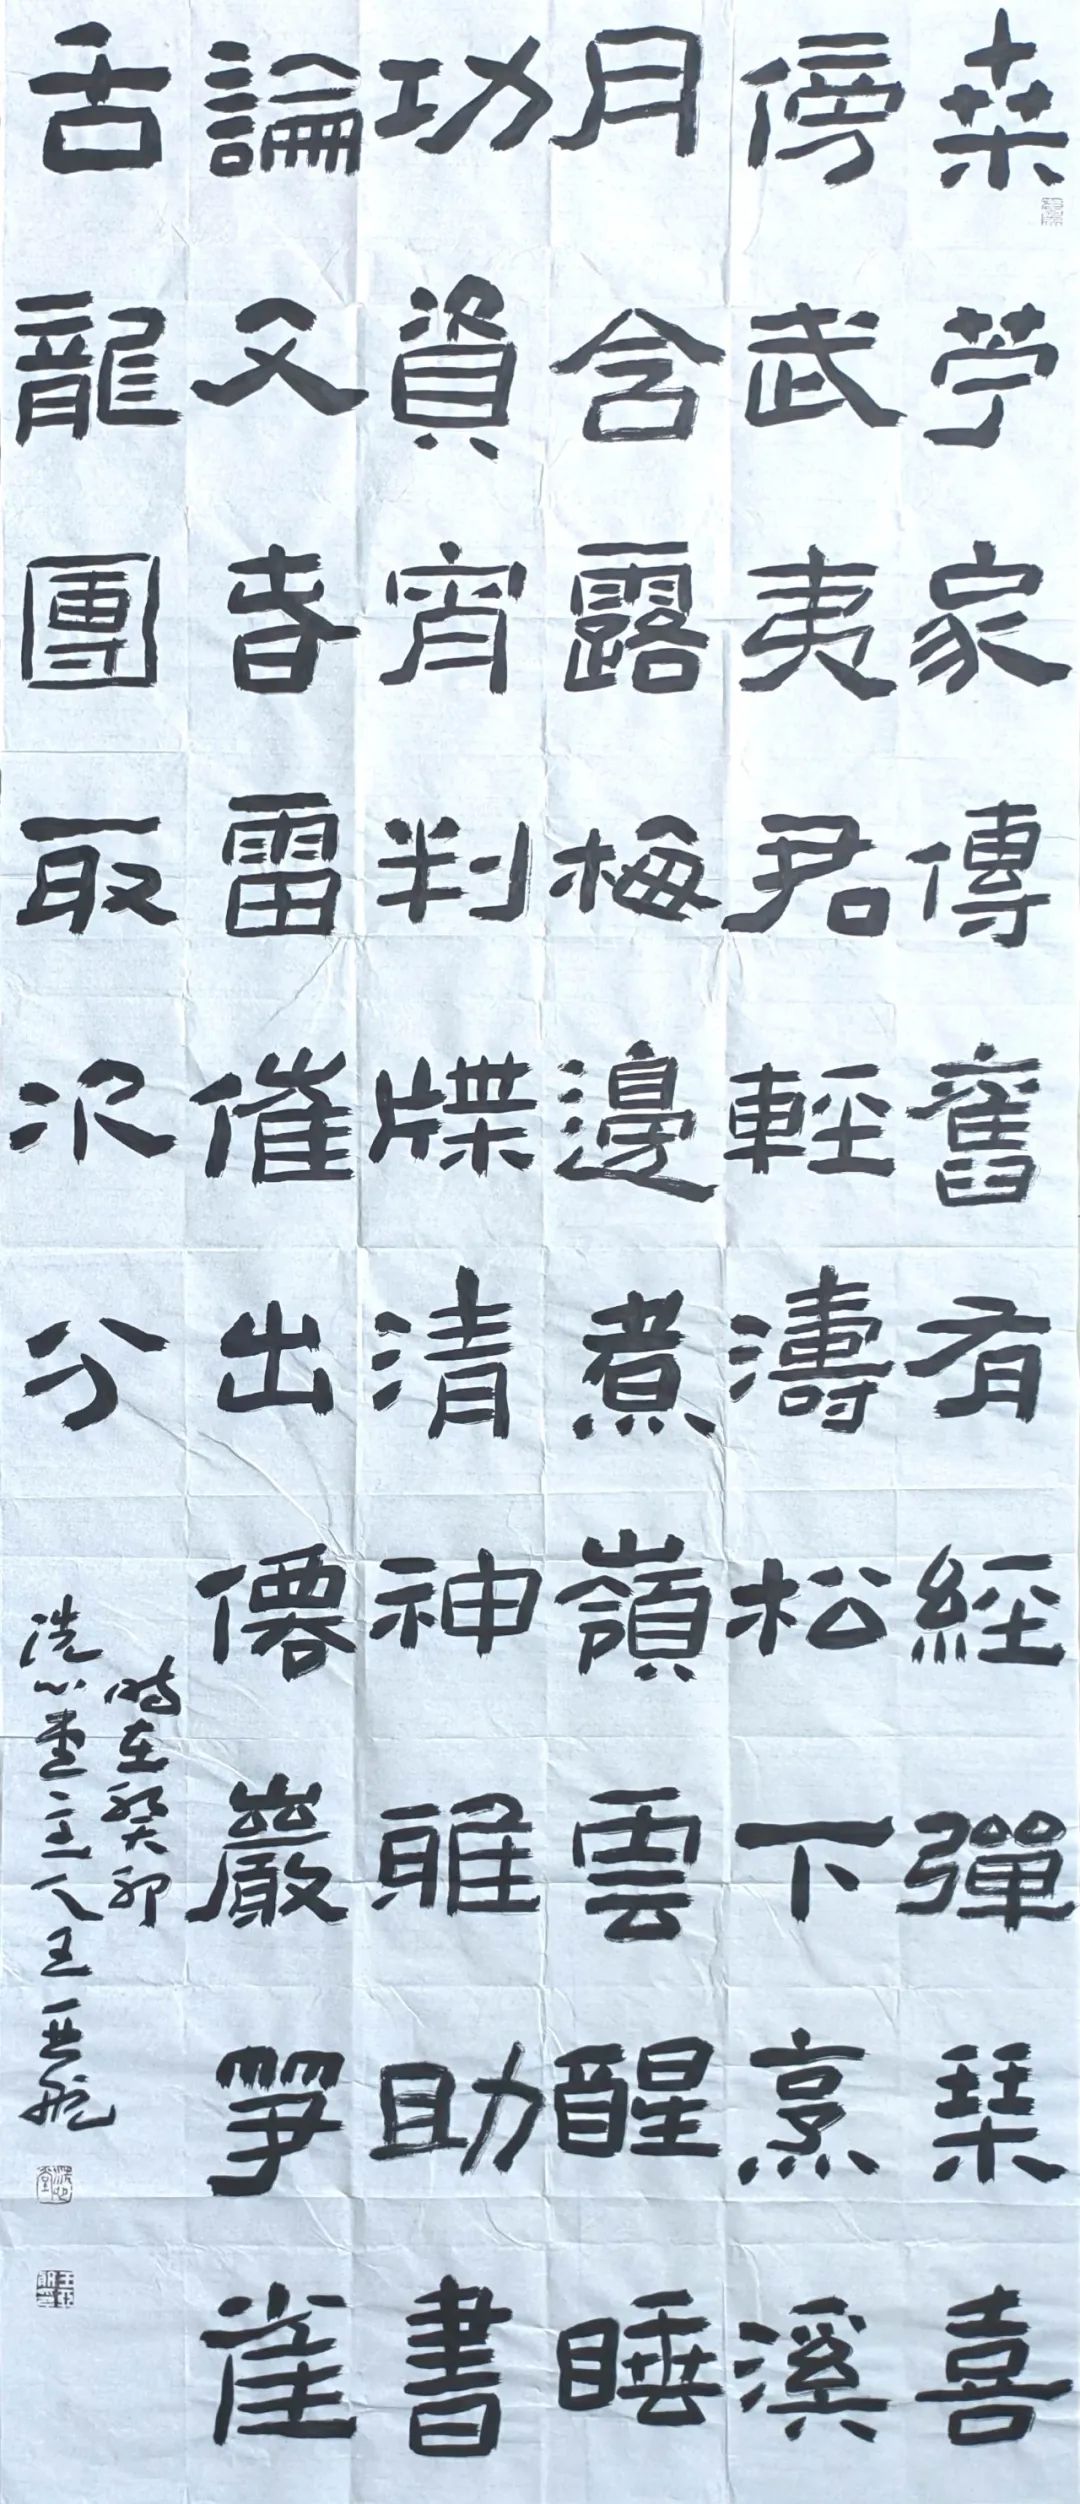 桒苧家傳舊有經彈琹喜
傍武夷君輕濤松下烹溪
月含露梅邊煮嶺雲醒睡
功資宵判牒清神雅助書
論文春雷催出僊巖笋雀
舌龍團取次分
時在癸卯
洗心堂主人王亞航